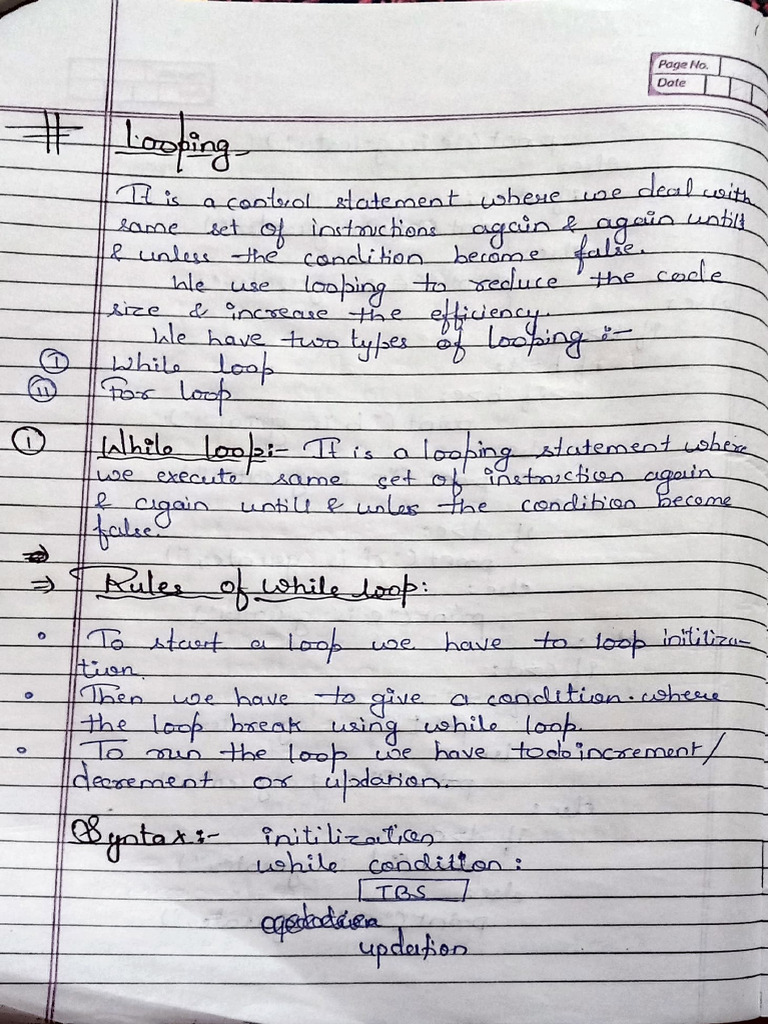 Page No.
Date
# Looping
It is a control statement where we deal with
same set of instructions again & again untill
& unless the condition become false.
We use looping to reduce the code
size & increase the efficiency.
We have two types of looping :-
I While loop
II For loop
I While loop:- It is a looping statement where
we execute same set of instruction again
& again untill & unles the condition become
false.
⇒ Rules of while loop:
• To start a loop we have to loop initiliza-
tion.
• Then we have to give a condition. where
the loop break using while loop.
• To run the loop we have to do increment/
decrement or updation.
Syntax:- initilization
while condition:
TBS
updation